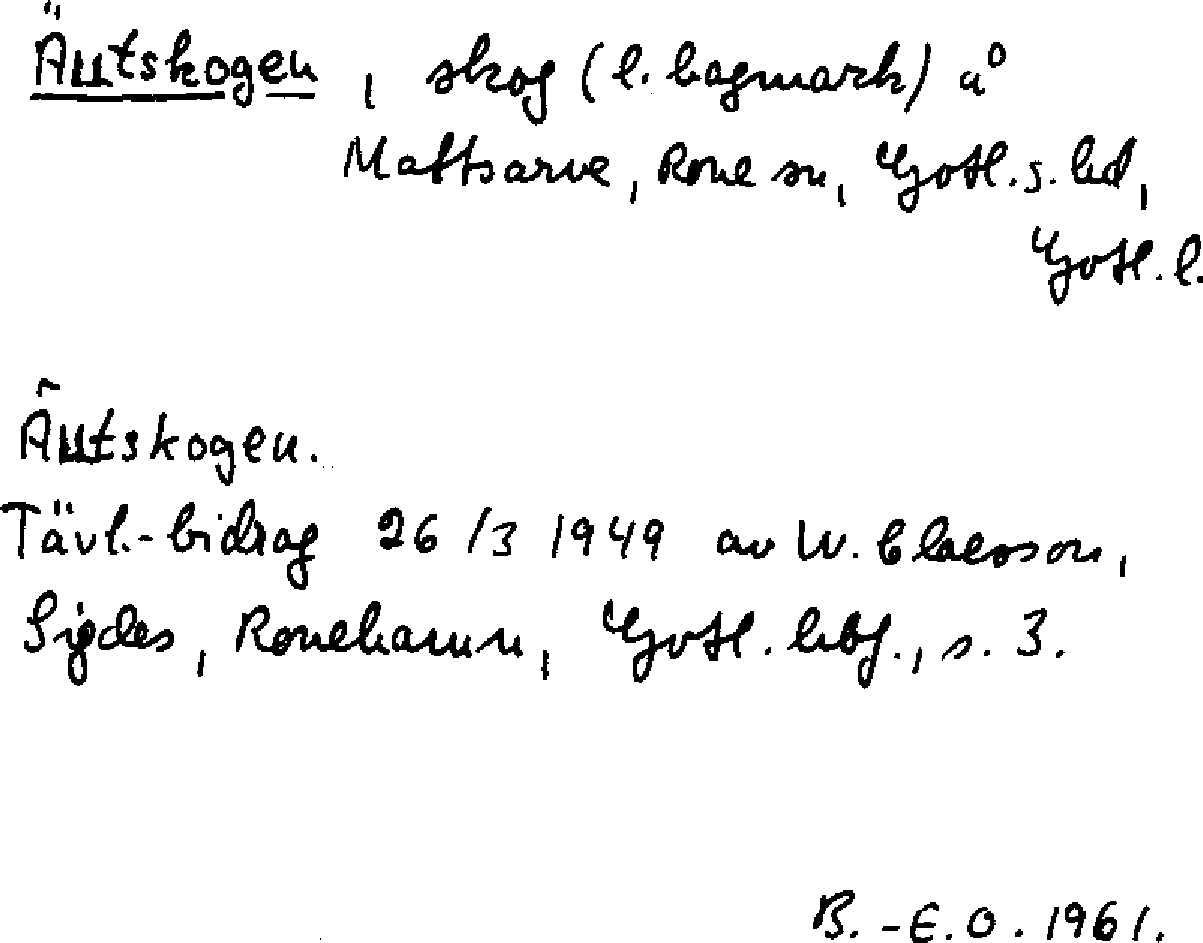 Äutskogen, skog (l. hagmark) å
Mattsarve, Rone sn, Gotl. s. hd,
Gotl. l.
Äutskogen.
Tävl.-bidrag 26/3 1949 av W. Claesson,
Sigdes, Ronehamn, Gotl. hbf., s. 3.
B.-E.O. 1961.